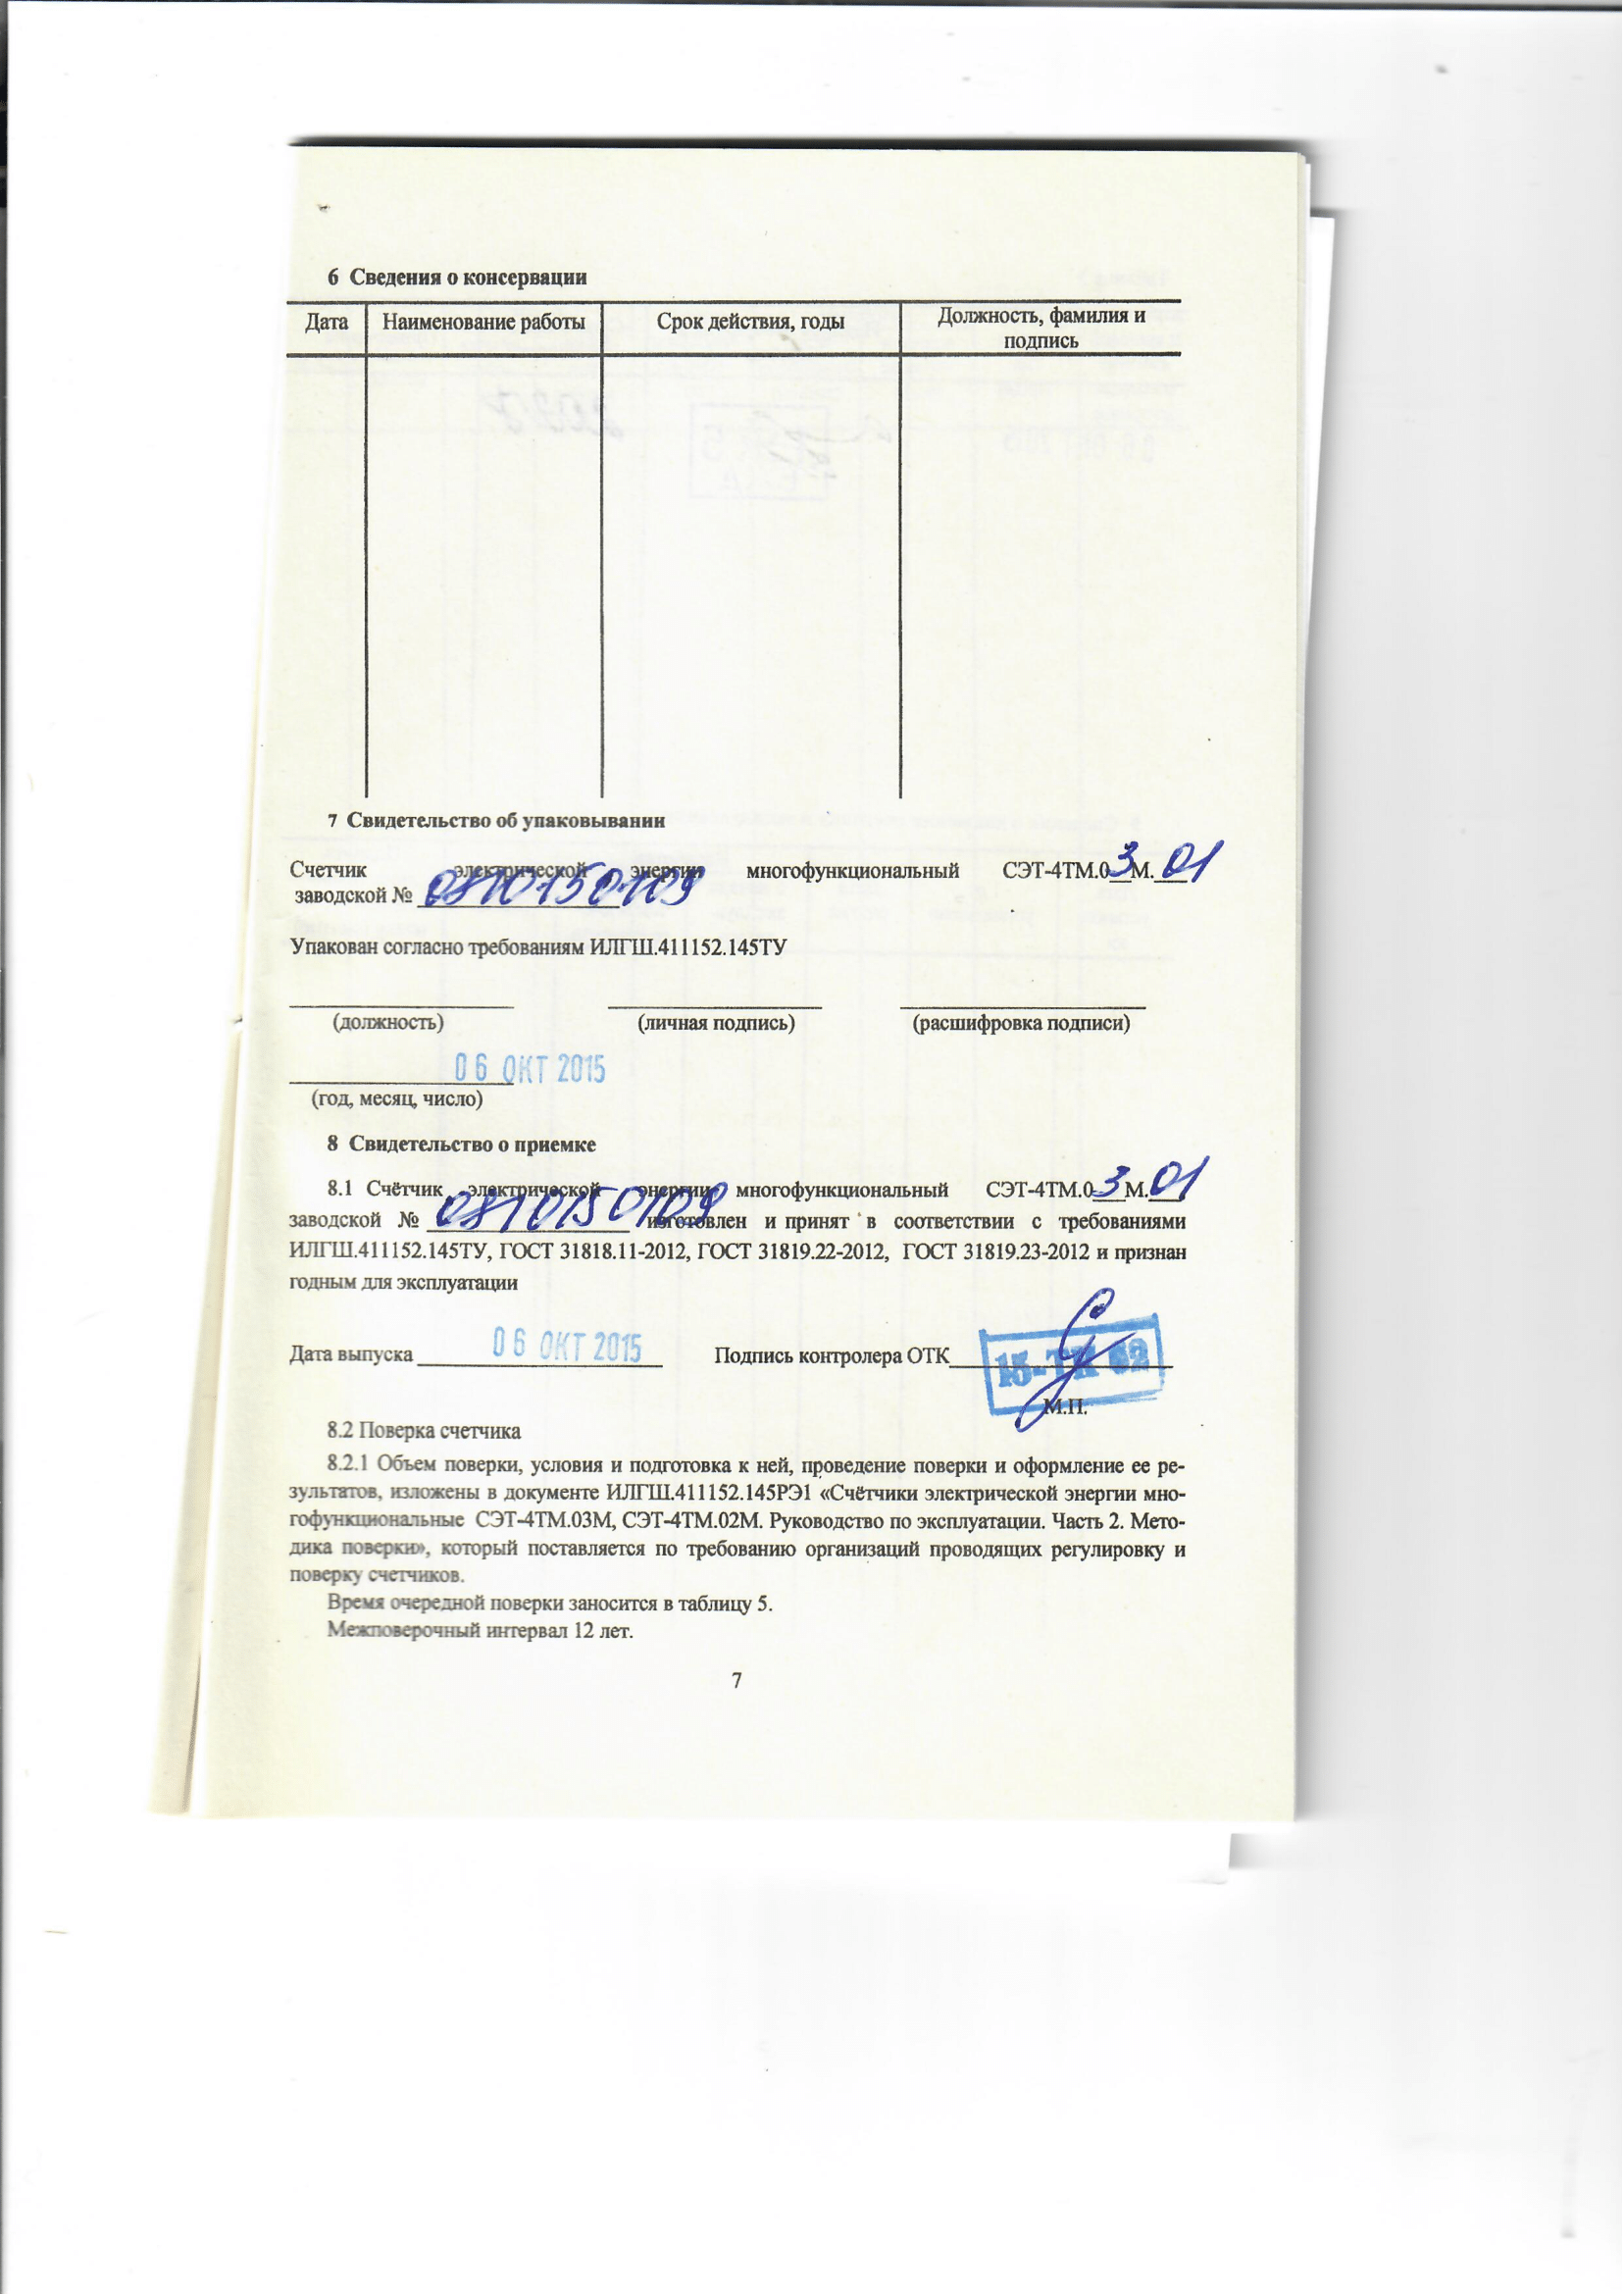 6 Сведения о консервации
Дата Наименование работы Срок действия, годы Должность, фамилия и
подпись
7 Свидетельство об упаковывании
Счетчик электрической энергии многофункциональный СЭТ-4ТМ.03М.01
заводской № 0810150109
Упакован согласно требованиям ИЛГШ.411152.145ТУ
(должность) (личная подпись) (расшифровка подписи)
06 ОКТ 2015
(год, месяц, число)
8 Свидетельство о приемке
8.1 Счётчик электрической энергии многофункциональный СЭТ-4ТМ.03М.01
заводской № 0810150109 изготовлен и принят в соответствии с требованиями
ИЛГШ.411152.145ТУ, ГОСТ 31818.11-2012, ГОСТ 31819.22-2012, ГОСТ 31819.23-2012 и признан
годным для эксплуатации
Дата выпуска 06 ОКТ 2015 Подпись контролера ОТК 15-ТК 62
М.П.
8.2 Поверка счетчика
8.2.1 Объем поверки, условия и подготовка к ней, проведение поверки и оформление ее ре-
зультатов, изложены в документе ИЛГШ.411152.145РЭ1 «Счётчики электрической энергии мно-
гофункциональные СЭТ-4ТМ.03М, СЭТ-4ТМ.02М. Руководство по эксплуатации. Часть 2. Мето-
дика поверки», который поставляется по требованию организаций проводящих регулировку и
поверку счетчиков.
Время очередной поверки заносится в таблицу 5.
Межповерочный интервал 12 лет.
7